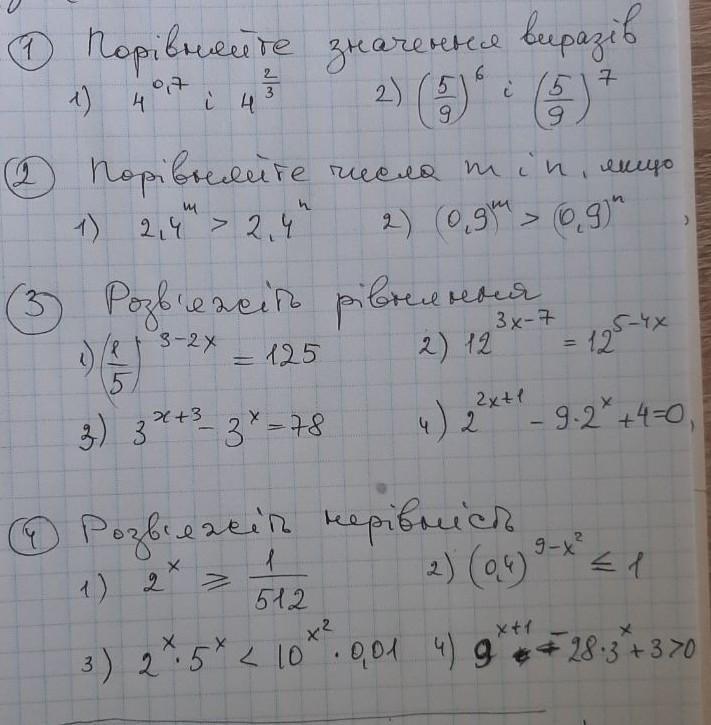 ① Порівняйте значення виразів
1) 4^{0,7} і 4^{2/3} 2) (5/9)^6 і (5/9)^7
② Порівняйте числа m і n, якщо
1) 2,4^m > 2,4^n 2) (0,9)^m > (0,9)^n,
③ Розв'яжіть рівняння
1) (1/5)^{3-2x} = 125 2) 12^{3x-7} = 12^{5-4x}
3) 3^{x+3} - 3^x = 78 4) 2^{2x+1} - 9·2^x + 4 = 0,
④ Розв'яжіть нерівність
1) 2^x ≥ 1/512 2) (0,4)^{9-x^2} ≤ 1
3) 2^x · 5^x < 10^{x^2} · 0,01 4) 9^{x+1} - 28·3^x + 3 > 0